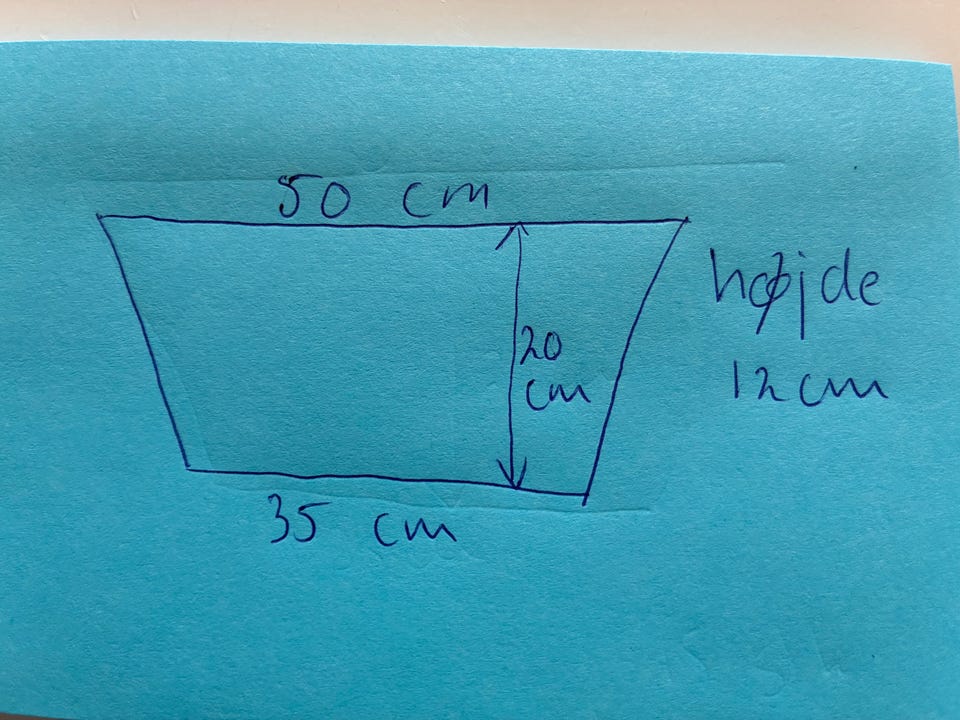 50 cm
højde
20
cm
12 cm
35 cm